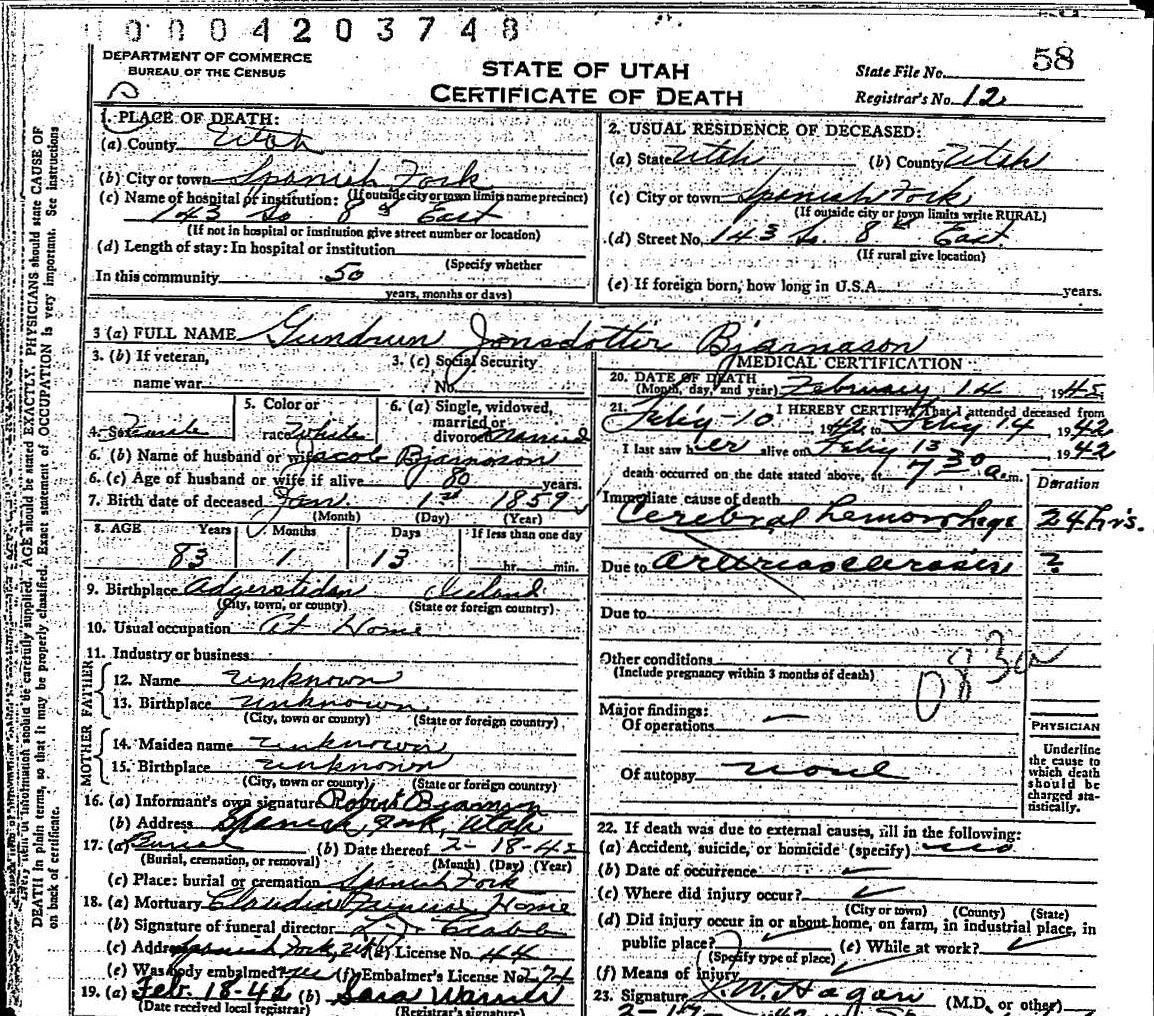 0 0 0 4 2 0 3 7 4 8
DEPARTMENT OF COMMERCE
BUREAU OF THE CENSUS
STATE OF UTAH
CERTIFICATE OF DEATH
State File No. 58
Registrar's No. 12
1. PLACE OF DEATH:
(a) County Utah
(b) City or town Spanish Fork
(If outside city or town limits name precinct)
(c) Name of hospital or institution:
143 So 8th East
(If not in hospital or institution give street number or location)
(d) Length of stay: In hospital or institution
(Specify whether
In this community 50
years, months or days)
2. USUAL RESIDENCE OF DECEASED:
(a) State Utah (b) County Utah
(c) City or town Spanish Fork
(If outside city or town limits write RURAL)
(d) Street No. 143 So. 8th East
(If rural give location)
(e) If foreign born, how long in U.S.A. years.
3 (a) FULL NAME Gundrun Jonsdotter Bjarnason
3. (b) If veteran,
name war
3. (c) Social Security
No.
4. Sex Female
5. Color or
race White
6. (a) Single, widowed,
married or
divorced Married
6. (b) Name of husband or wife Jacob Bjarnason
6. (c) Age of husband or wife if alive 80 years.
7. Birth date of deceased Jan 1st 1859
(Month) (Day) (Year)
8. AGE Years Months Days If less than one day
83 1 13 hr. min.
9. Birthplace
(City, town, or county) (State or foreign country)
10. Usual occupation At Home
11. Industry or business:
FATHER
12. Name unknown
13. Birthplace unknown
(City, town or county) (State or foreign country)
MOTHER
14. Maiden name unknown
15. Birthplace unknown
(City, town or county) (State or foreign country)
16. (a) Informant's own signature Robert
(b) Address Spanish Fork, Utah
17. (a) Burial (b) Date thereof 2-18-42
(Burial, cremation, or removal) (Month) (Day) (Year)
(c) Place: burial or cremation Spanish Fork
18. (a) Mortuary Home
(b) Signature of funeral director
(c) Address Spanish Fork, (d) License No. 44
(e) Was body embalmed? yes (f) Embalmer's License No. 274
19. (a) Feb. 18-42 (b) Sara Warner
(Date received local registrar) (Registrar's signature)
MEDICAL CERTIFICATION
20. DATE OF DEATH
(Month, day, and year) February 14 1942
21. I HEREBY CERTIFY, That I attended deceased from
10 1942, to 14 1942
I last saw her alive on 13 1942
death occurred on the date stated above, at 7 30 a.m.
Duration
Immediate cause of death
Cerebral hemorrhage 24 hrs.
Due to arteriosclerosis ?
Due to
Other conditions
(Include pregnancy within 3 months of death)
083a
Major findings:
Of operations
Of autopsy none
PHYSICIAN
Underline
the cause to
which death
should be
charged sta-
tistically.
22. If death was due to external causes, fill in the following:
(a) Accident, suicide, or homicide (specify) no
(b) Date of occurrence
(c) Where did injury occur?
(City or town) (County) (State)
(d) Did injury occur in or about home, on farm, in industrial place, in
public place? (e) While at work?
(Specify type of place)
(f) Means of injury
23. Signature J. W. Hagan (M.D. or other)
DEATH in plain terms, so that it may be properly classified. Exact statement of OCCUPATION is very important. See instructions
on back of certificate.
information should be carefully supplied. AGE should be stated EXACTLY. PHYSICIANS should state CAUSE OF